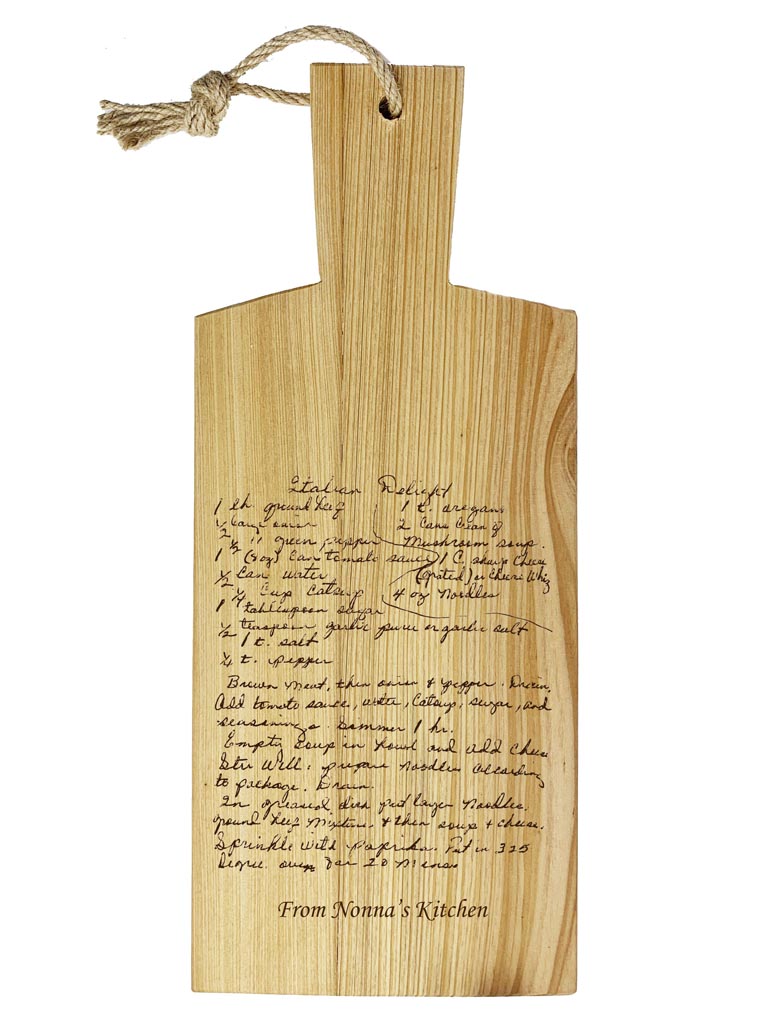 Italian Delight
1 lb. ground beef
1/2 large onion
1/2 " green pepper
1 (8oz) can tomato sauce
1/2 can water
1/4 cup catsup
1 tablespoon sugar
1/2 teaspoon garlic puree or garlic salt
1 t. salt
1/4 t. pepper
1 t. oregano
2 cans cream of
mushroom soup.
1 C. sharp cheese
(grated) or cheese whiz
4 oz noodles
Brown meat, then onion & pepper. Drain.
Add tomato sauce, water, catsup, sugar, and
seasonings. Simmer 1 hr.
Empty soup in bowl and add cheese
Stir well. prepare noodles according
to package. Drain.
In greased dish put layer noodles,
ground beef mixture, & then soup & cheese.
Sprinkle with paprika. Put in 325
degree oven for 20 mins
From Nonna's Kitchen